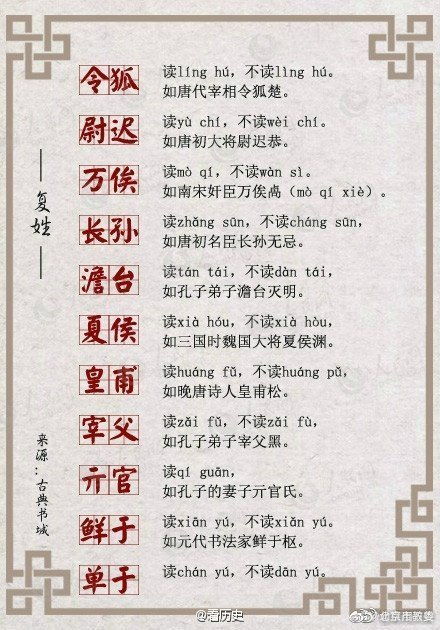 令狐
读líng hú，不读lìng hú。
如唐代宰相令狐楚。
尉迟
读yù chí，不读wèi chí。
如唐初大将尉迟恭。
万俟
读mò qí，不读wàn sì。
如南宋奸臣万俟卨（mò qí xiè）。
长孙
读zhǎng sūn，不读cháng sūn，
如唐初名臣长孙无忌。
澹台
读tán tái，不读dàn tái，
如孔子弟子澹台灭明。
夏侯
读xià hóu，不读xià hòu，
如三国时魏国大将夏侯渊。
皇甫
读huáng fǔ，不读huáng pǔ，
如晚唐诗人皇甫松。
宰父
读zǎi fǔ，不读zǎi fù，
如孔子弟子宰父黑。
亓官
读qí guān，
如孔子的妻子亓官氏。
鲜于
读xiān yú，不读xiǎn yú。
如元代书法家鲜于枢。
单于
读chán yú，不读dān yú。
复姓
来源：古典书城
@看历史